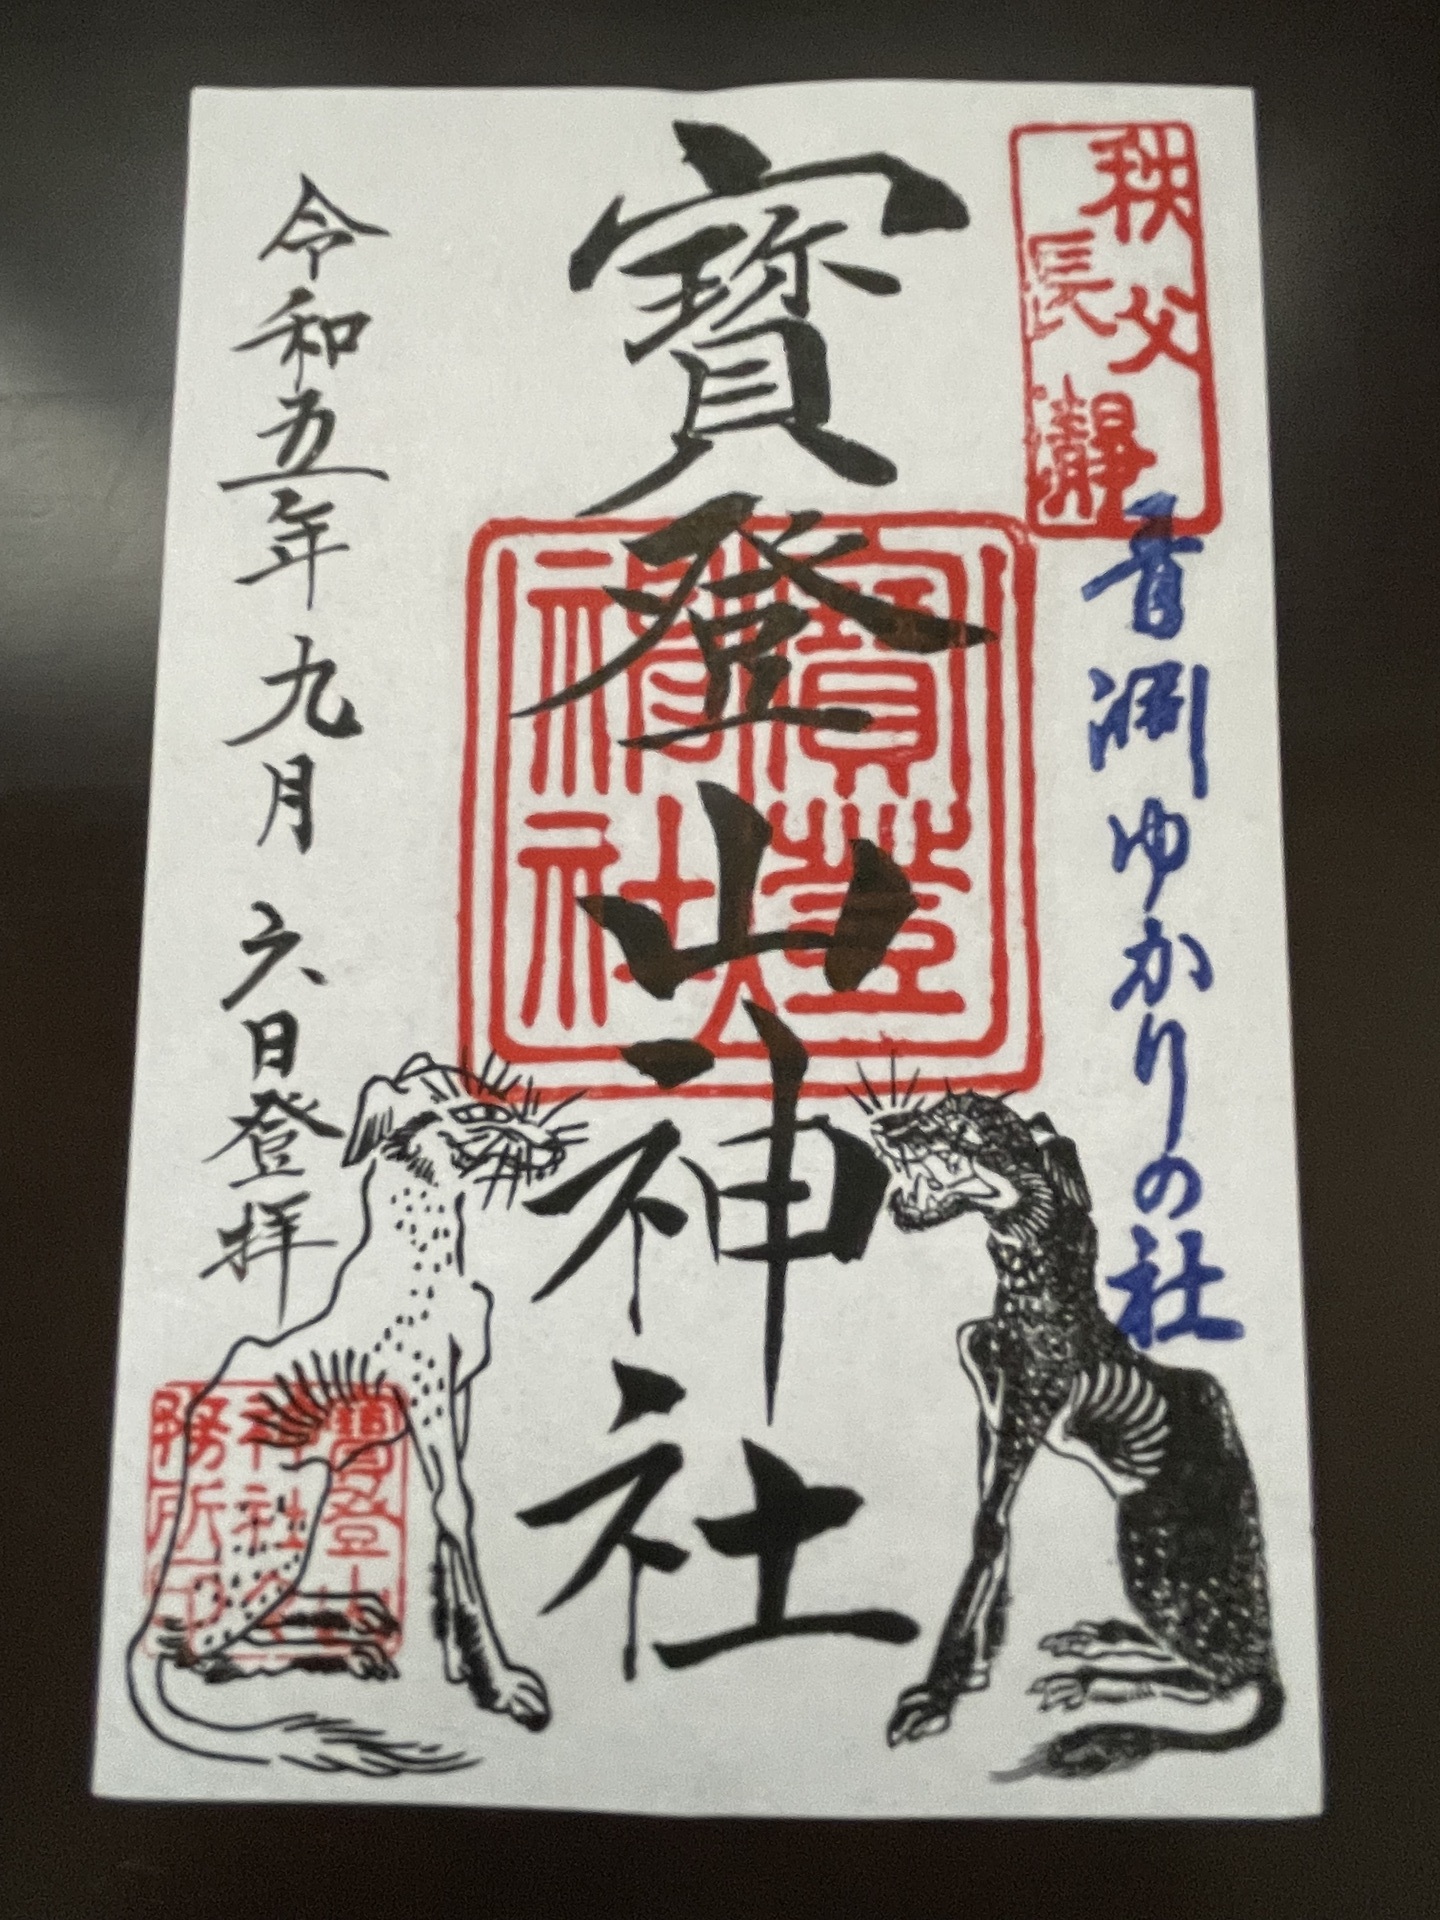 秩父
長瀞
青淵ゆかりの社
寶登山神社
寶登山
神社
令和五年九月六日登拝
寶登山
神社
務所印